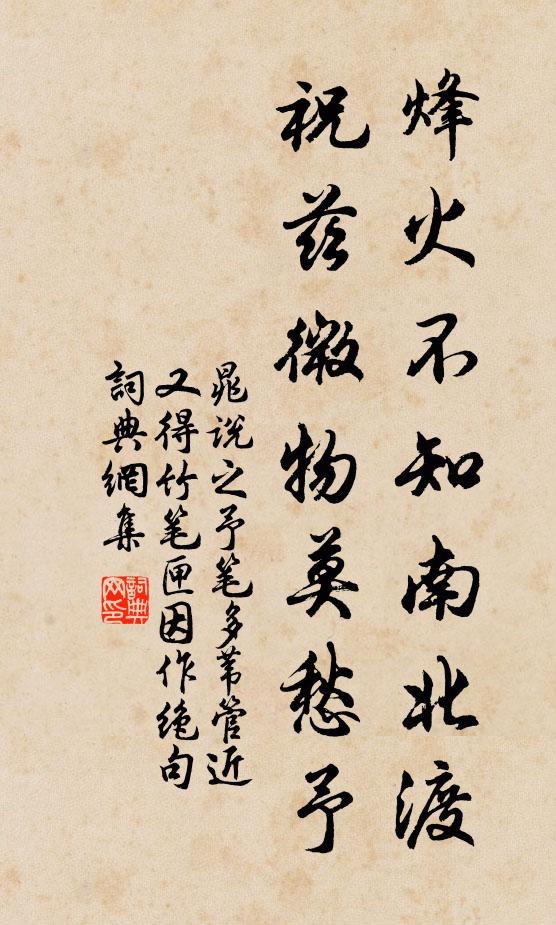 烽火不知南北渡
祝茲微物莫愁予
晁說之予笔多苇管近
又得竹笔匣因作絶句
詞典網集
詞典网印